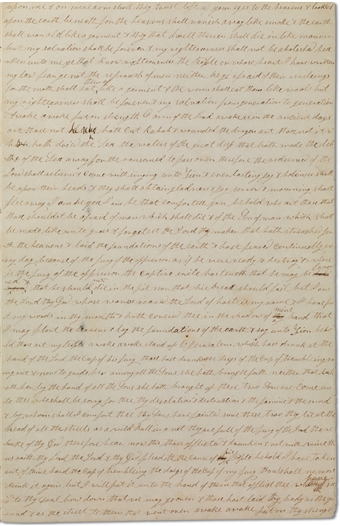 upon me & on mine arm shall they trust lift up your eyes to the heavens & look
upon the earth beneath for the heavens shall vanish away like smoke & the earth
shall wax old like a garment & they that dwell therein shall die in like manner
but my salvation shall be forever & my righteousness shall not be abolished
unto me ye that know righteousness the people in whose heart I have written
my law fear ye not the reproach of men neither be ye afraid of their revilings
for the moth shall eat them up like a garment & the worm shall eat them like wool but
my righteousness shall be forever & my salvation from generation to generation
awake awake put on strength O arm of the Lord awake as in the ancient days
art thou not he that hath cut Rahab & wounded the dragon art thou not
hath dried the Sea the waters of the great deep that hath made the
of the Sea a way for the ransomed to pass over therefore the redeemed of the
Lord shall return & come with singing unto Zion & everlasting joy & holiness shall
be upon their heads & they shall obtain gladness & joy sorrow & mourning shall
flee away I am he yea I am he that comforteth you behold who art thou that
thou shouldst be afraid of man which shall die & of the Son of man which shall
be made like unto grass & forgettest the Lord thy maker that hath stretched
forth the heavens & laid the foundations of the earth & hast feared continually every
day because of the fury of the oppressor as if he were ready to destroy & where
is the fury of the oppressor the captive exile hasteneth that he may be
& that he should not die in the pit nor that his bread should fail but I am
the Lord thy God whose waves roared the Lord of hosts is my name & I have put
my words in thy mouth & hath covered thee in the shadow of mine hand that
I may plant the heavens & lay the foundations of the earth & say unto Zion
thou art my people awake awake stand up O Jerusalem which hast drunk at the
hand of the Lord the cup of his fury thou hast drunken the dregs of the cup of trembling
out & none to guide her among all the Sons she hath brought forth neither that
her by the hand of all the Sons she hath brought up these two Sons are come
thee who shall be sorry for thee thy desolation & destruction & the famine & the sword
& by whom shall I comfort thee thy Sons have fainted save these two they lie at the
head of all the streets as a wild bull in a net they are full of the fury of the Lord the
rebuke of thy God therefore hear now this thou afflicted & drunken & not with wine
saith thy Lord the Lord & thy God pleadeth the cause of his people behold I have taken
out of thine hand the cup of trembling the dregs of the cup of my fury thou shalt no more
drink it again but I will put it into the hand of them that afflict thee
to thy Soul bow down that we may go over & thou hast laid thy body as the
& as the street to them that went over awake awake put on thy strength